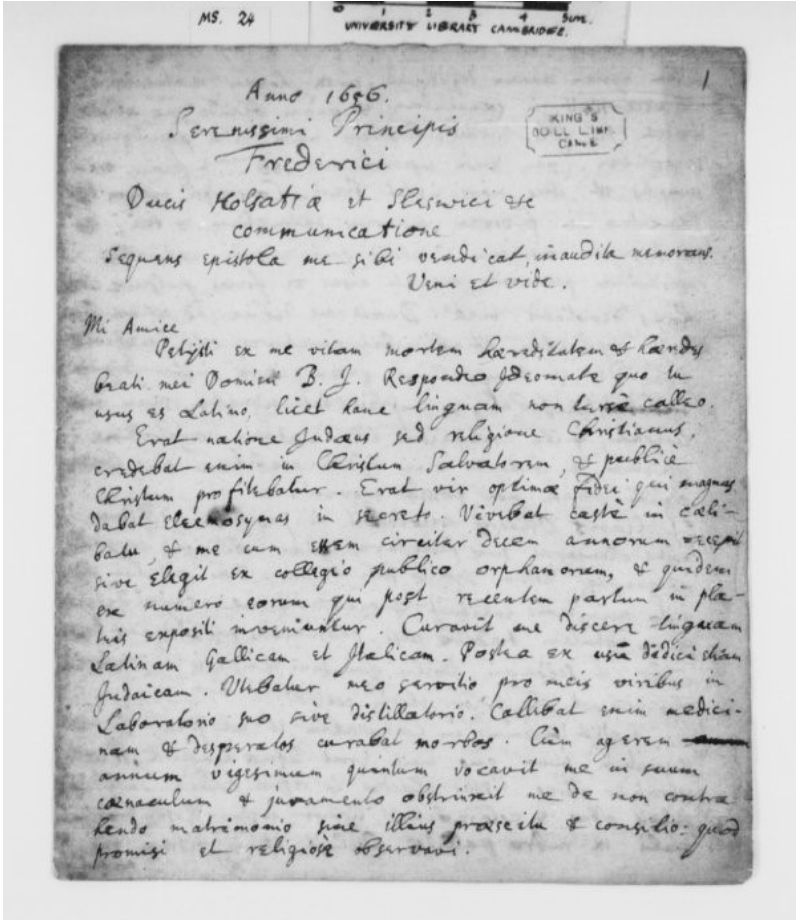 MS. 24
0 1 2 3 4 5cm.
UNIVERSITY LIBRARY CAMBRIDGE.
1
KING'S
COLL. LIBR.
CAMB.
Anno 1656.
Serenissimi Principis
Frederici
Ducis Holsatiæ et Sleswici &c
communicatione
Sequens epistola me sibi vendicat, inaudita memorans.
Veni et vide.
Mi Amice
Petijsti ex me vitam mortem hæreditatem & hæredes
beati mei Domini B. J. Respondeo Ideomate quo tu
usus es Latino, licet hanc linguam non tersè calleo.
Erat natione Judæus sed religione Christianus,
credebat enim in Christum Salvatorem, & publicè
Christum profitebatur. Erat vir optimæ fidei qui magnas
dabat eleemosynas in secreto. Vivebat castè in cæli-
batu, & me cum essem circiter decem annorum recepit
sive elegit ex collegio publico orphanorum, & quidem
ex numero eorum qui post recentem partum in pla-
teis expositi inveniuntur. Curavit me discere linguam
Latinam Gallicam et Italicam. Postea ex usu didici etiam
Judaicam. Utebatur meo servitio pro meis viribus in
Laboratorio suo sive distillatorio. Callebat enim medici-
nam & desperatos curabat morbos. Cùm agerem
annum vigesimum quintum vocavit me in suum
cœnaculum & juramento obstrinxit me de non contra
hendo matrimonio sine illius præscitu & consilio: quod
promisi et religiosè observavi.